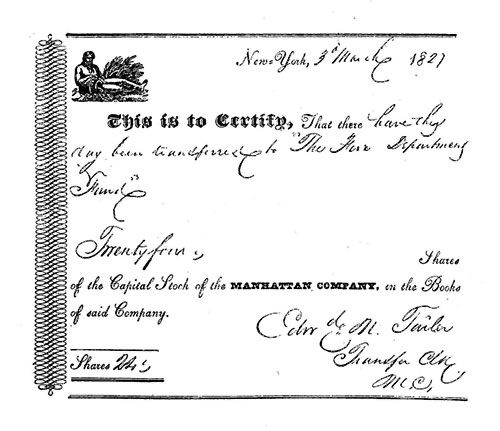 New-York, 3d March 1821
This is to Certify, That there have this
day been transferred to "The Fire Department
Fund"
Twenty four
Shares
of the Capital Stock of the MANHATTAN COMPANY, in the Books
of said Company.
Edwd M. Tailer
Shares 24
Transfer Clk
M. C.